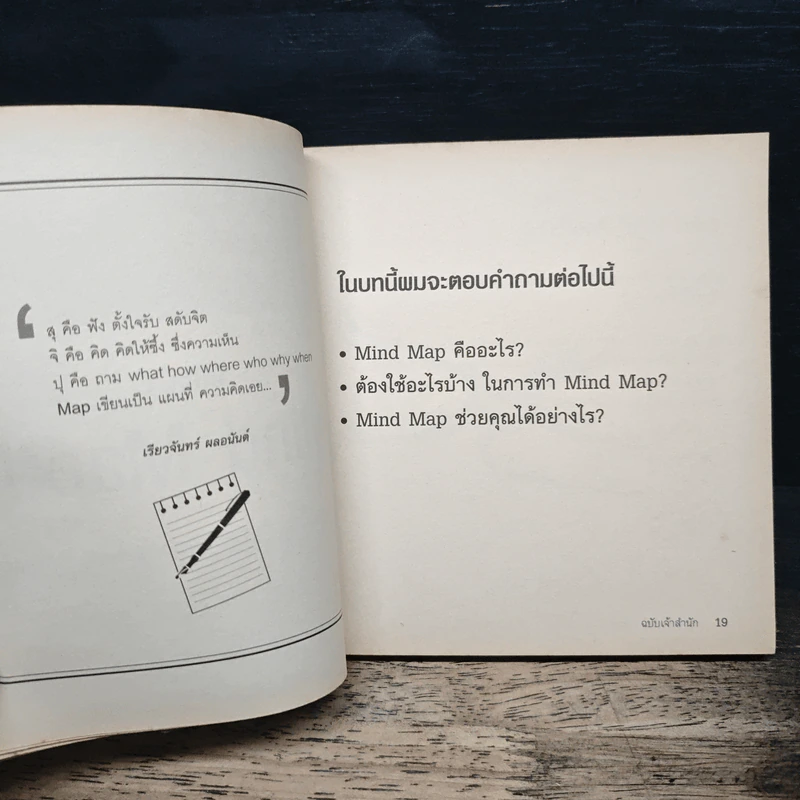 ‘
สุ คือ ฟัง ตั้งใจรับ สดับจิต
จิ คือ คิด คิดให้ซึ้ง ซึ่งความเห็น
ปุ คือ ถาม what how where who why when
Map เขียนเป็น แผนที่ ความคิดเอย... ’
เรียวจันทร์ ผลอนันต์
ในบทนี้ผมจะตอบคำถามต่อไปนี้
• Mind Map คืออะไร?
• ต้องใช้อะไรบ้าง ในการทำ Mind Map?
• Mind Map ช่วยคุณได้อย่างไร?
ฉบับเจ้าสำนัก 19